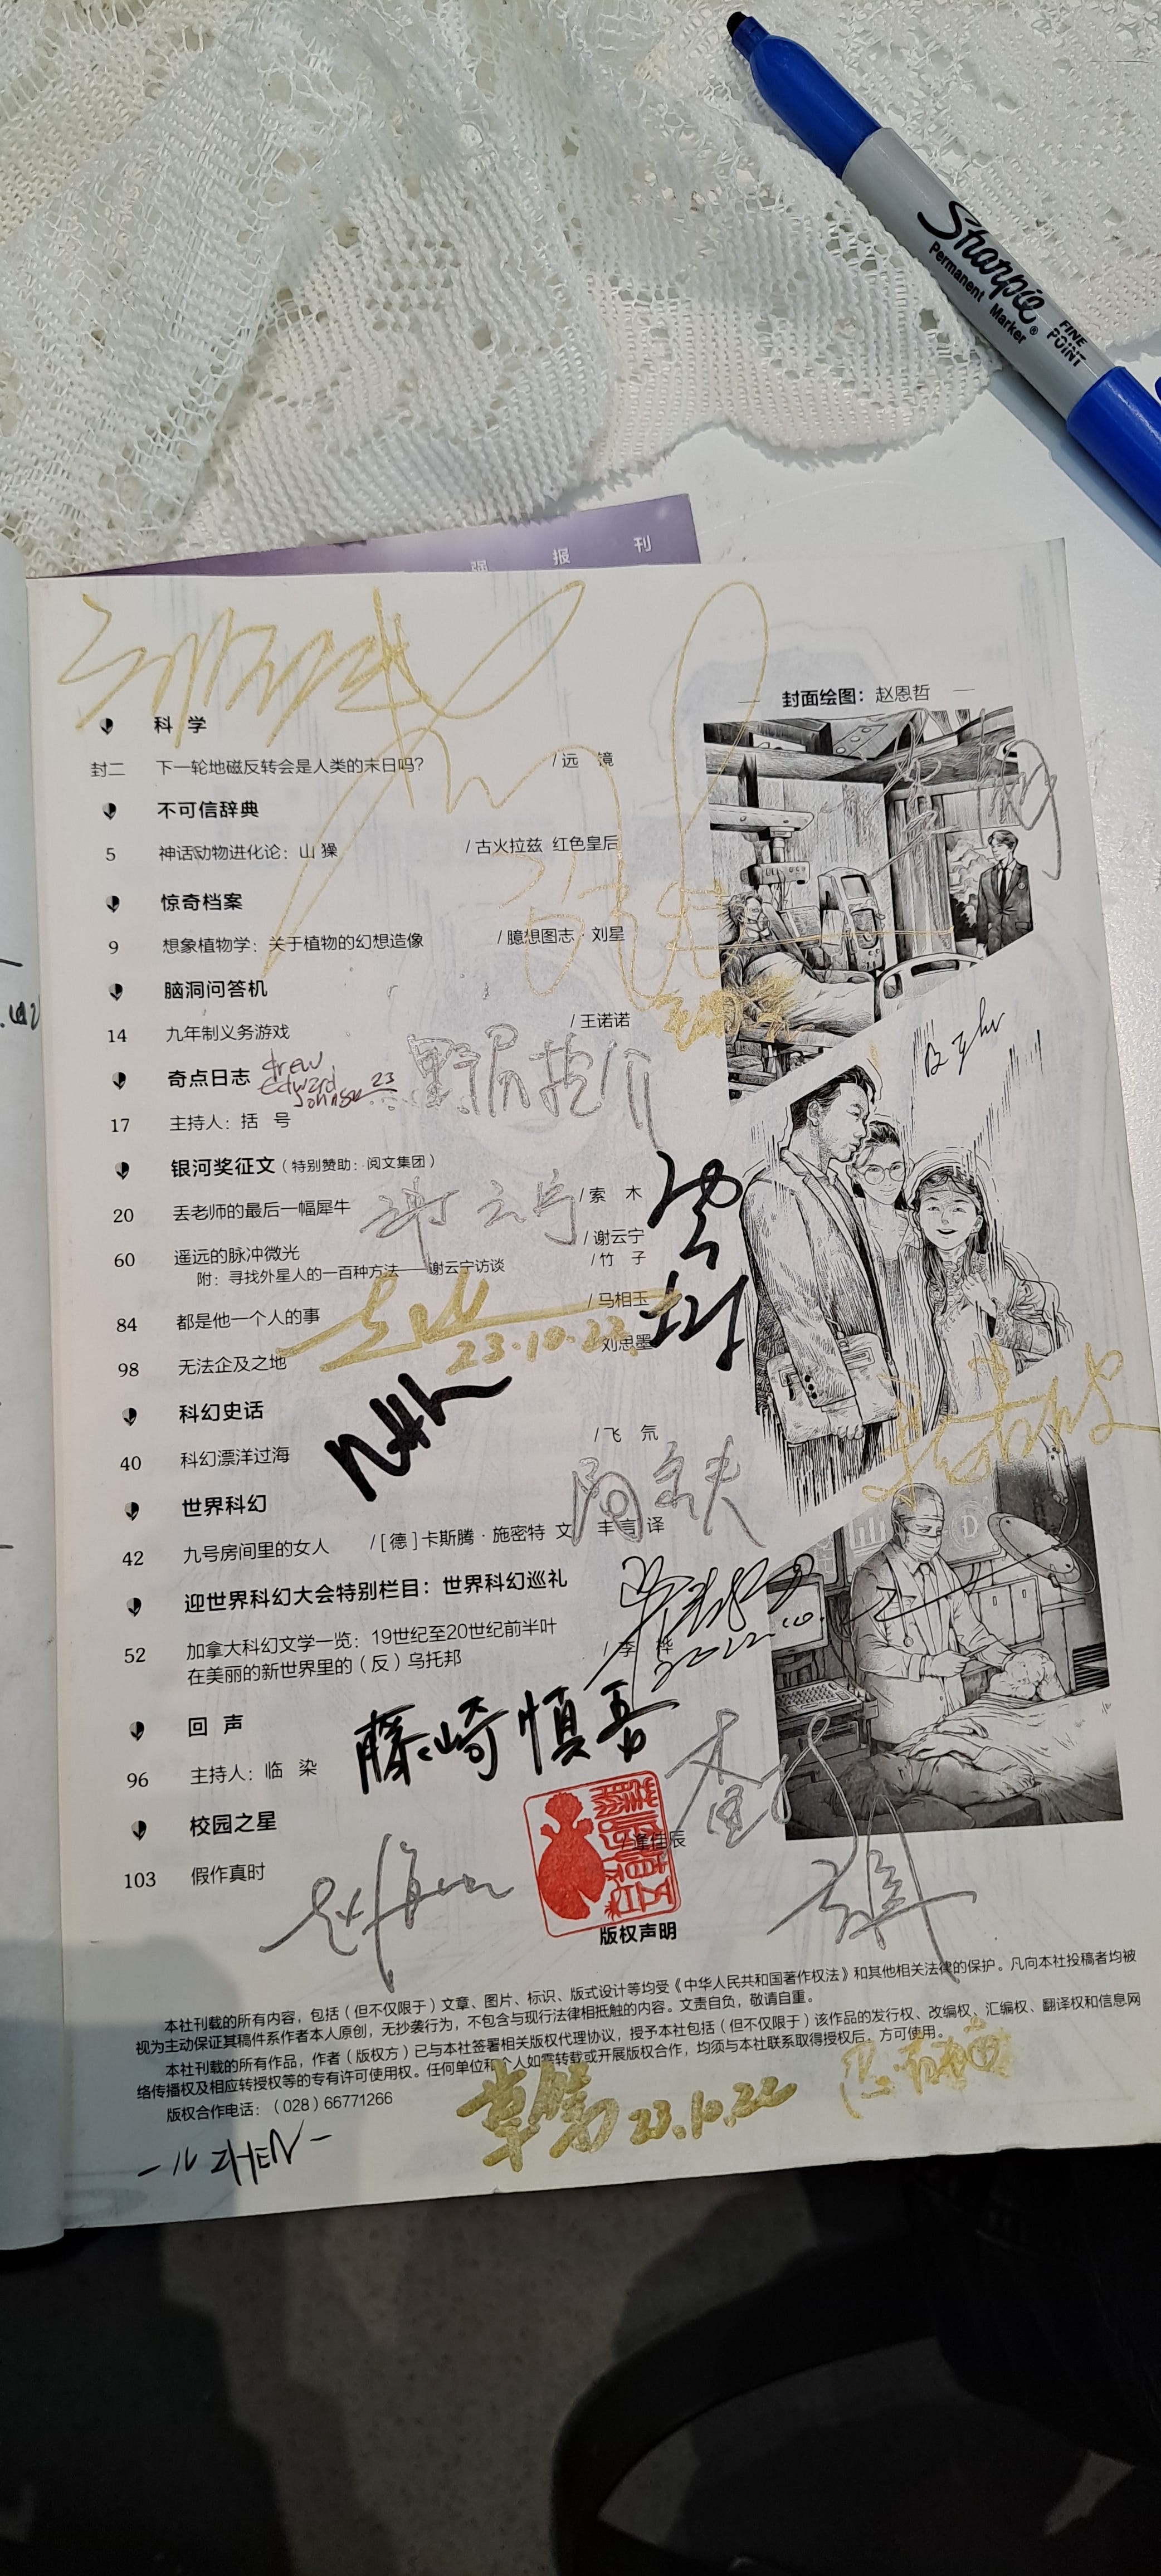 Sharpie®
Permanent Marker
FINE
POINT
强 报 刊
封面绘图：赵恩哲
科 学
封二 下一轮地磁反转会是人类的末日吗？ /远 镜
不可信辞典
5 神话动物进化论：山獋 /古火拉兹 红色皇后
惊奇档案
9 想象植物学：关于植物的幻想造像 /臆想图志·刘星
脑洞问答机
14 九年制义务游戏 /王诺诺
奇点日志
drew
Edward
Johnson 23
野尻抱介
17 主持人：括 号
银河奖征文（特别赞助：阅文集团）
20 丢老师的最后一幅犀牛 /索 木
谢云宁
60 遥远的脉冲微光 /谢云宁
附：寻找外星人的一百种方法——谢云宁访谈 /竹 子
84 都是他一个人的事 /马相玉
23.10.22
98 无法企及之地 刘思墨
科幻史话
40 科幻漂洋过海 /飞 氘
世界科幻
42 九号房间里的女人 /[德]卡斯腾·施密特 文 丰言 译
迎世界科幻大会特别栏目：世界科幻巡礼
52 加拿大科幻文学一览：19世纪至20世纪前半叶 /李 桦
在美丽的新世界里的（反）乌托邦
回 声
藤崎慎吾
96 主持人：临 染
校园之星
103 假作真时 /逄佳辰
版权声明
本社刊载的所有内容，包括（但不仅限于）文章、图片、标识、版式设计等均受《中华人民共和国著作权法》和其他相关法律的保护。凡向本社投稿者均被
视为主动保证其稿件系作者本人原创，无抄袭行为，不包含与现行法律相抵触的内容。文责自负，敬请自重。
本社刊载的所有作品，作者（版权方）已与本社签署相关版权代理协议，授予本社包括（但不仅限于）该作品的发行权、改编权、汇编权、翻译权和信息网
络传播权及相应转授权等的专有许可使用权。任何单位和个人如需转载或开展版权合作，均须与本社联系取得授权后，方可使用。
版权合作电话：（028）66771266
23.10.22
ZHEN